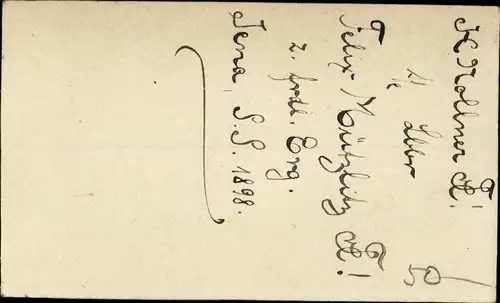 K. Kollner
s/l. Lbbr
Felix Mützlitz
z. frdl. Erg.
Jena, S.S. 1898.
50